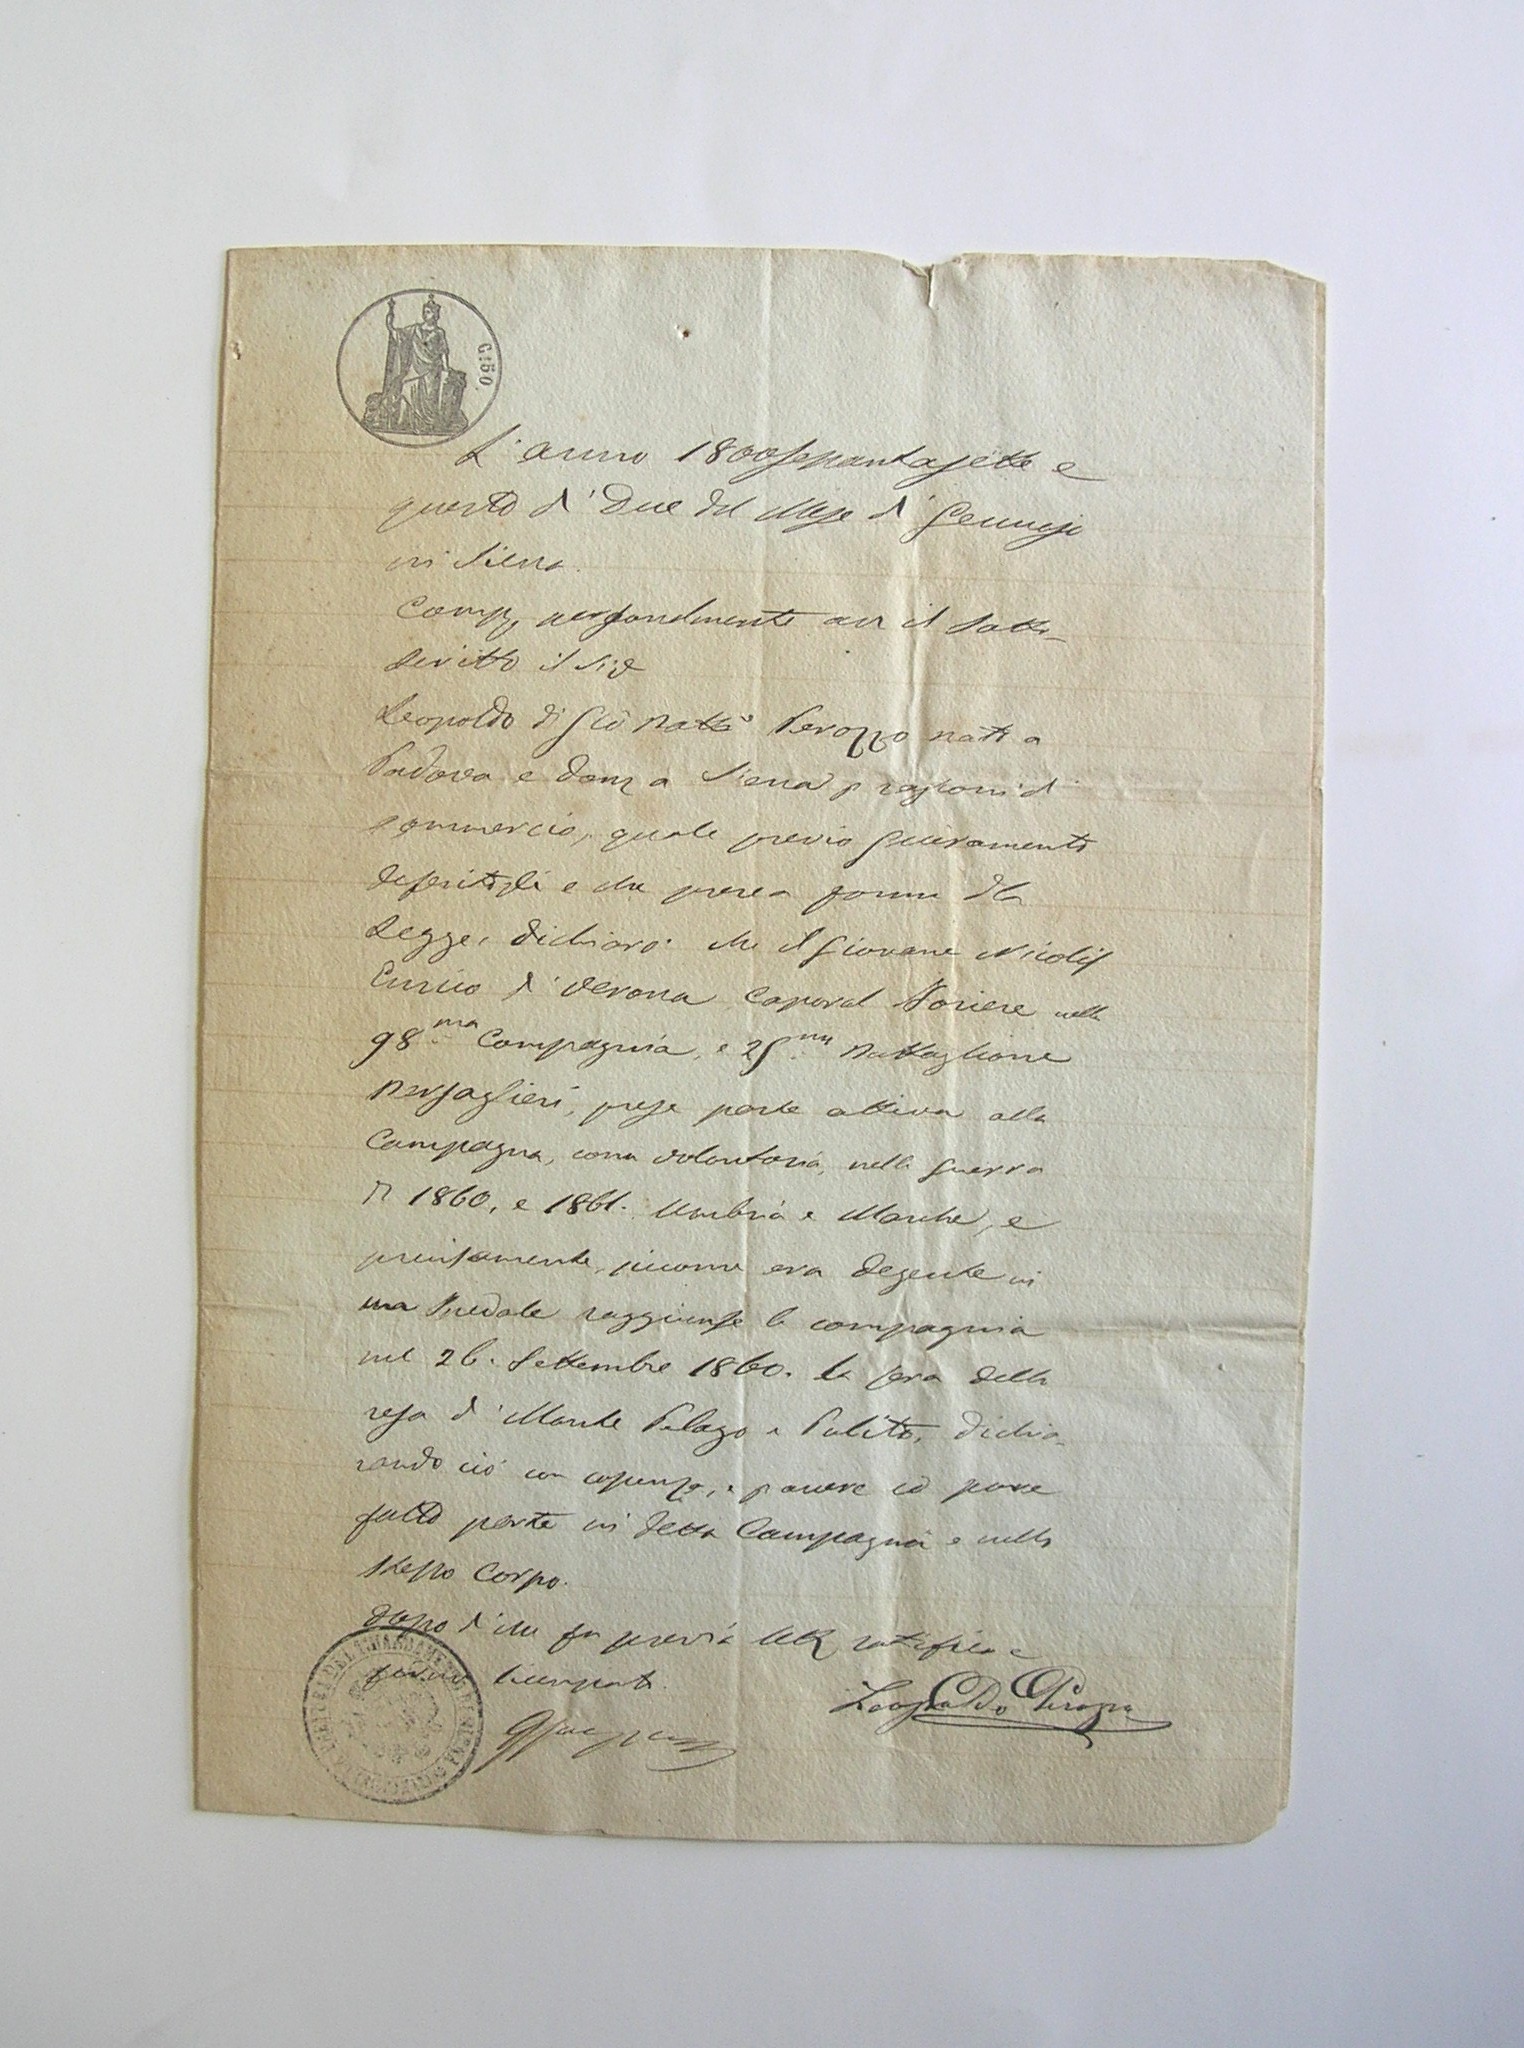 C: 50.
L'anno 1800 Settantasette e
questo dì Due del Mese di Gennajo
in Siena.
Comp. personalmente avr il Sotto-
scritto il Sig
Leopoldo di Gio Batt Perozzo nato a
Padova e dom a Siena p ragioni di
commercio, quale previo Giuramento
deferitogli e che prese a forma dla
Legge, dichiarò che il Giovane Nicolis
Enrico di Verona Caporal Foriere nella
98ma Compagnia, e 25mo Battaglione
Bersaglieri, prese parte attiva alla
Campagna, come volontario, nella Guerra
di 1860, e 1861. Umbria e Marche, e
precisamente, siccome era degente in
uno Spedale raggiunse la compagnia
nel 26. Settembre 1860. la sera della
resa di Monte Pelago e Pulito, dichia-
rando ciò con coscenza, e p avere io pure
fatto parte in detta Campagna e nello
stesso Corpo.
dopo di che fu previa ratifica e
firma licenziato.
Leopoldo Perozzo